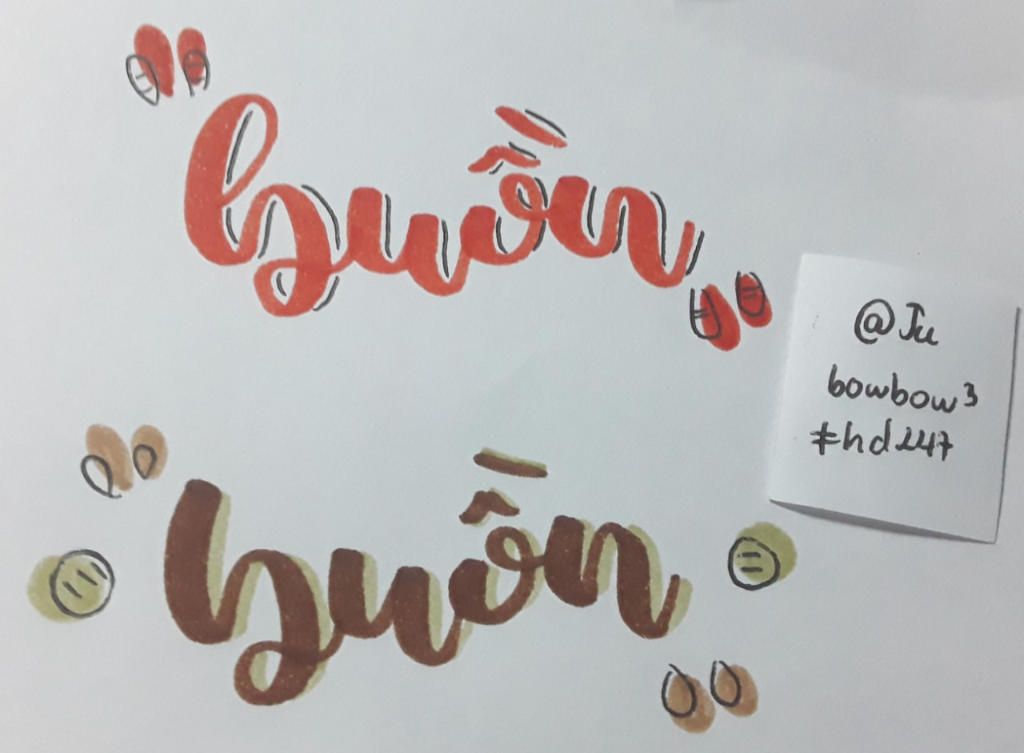 "buồn"
@Ju
bowbow3
#hd247
"buồn"